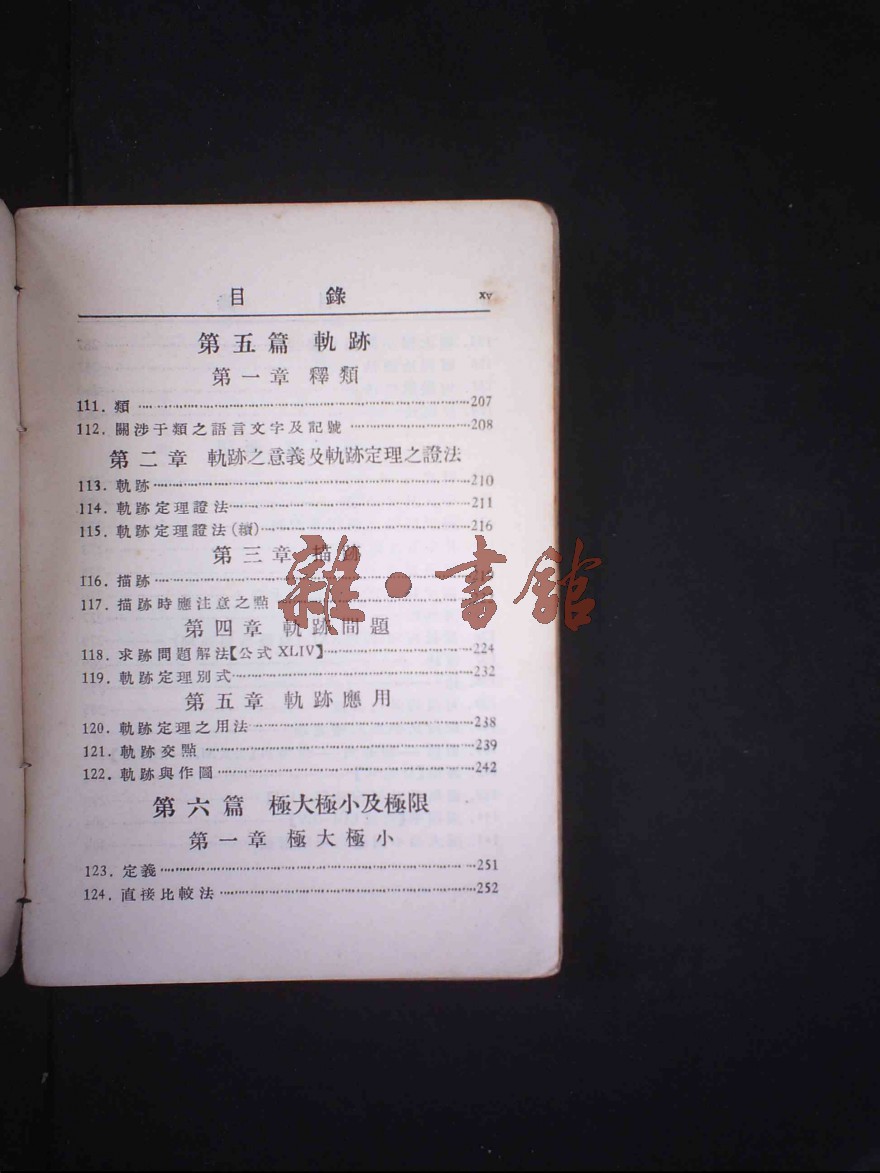 目 錄 xv
第五篇 軌跡
第一章 釋類
111. 類 207
112. 關涉于類之語言文字及記號 208
第二章 軌跡之意義及軌跡定理之證法
113. 軌跡 210
114. 軌跡定理證法 211
115. 軌跡定理證法(續) 216
第三章 描跡
116. 描跡
117. 描跡時應注意之點
雜·書館
第四章 軌跡問題
118. 求跡問題解法【公式 XLIV】 224
119. 軌跡定理別式 232
第五章 軌跡應用
120. 軌跡定理之用法 238
121. 軌跡交點 239
122. 軌跡與作圖 242
第六篇 極大極小及極限
第一章 極大極小
123. 定義 251
124. 直接比較法 252